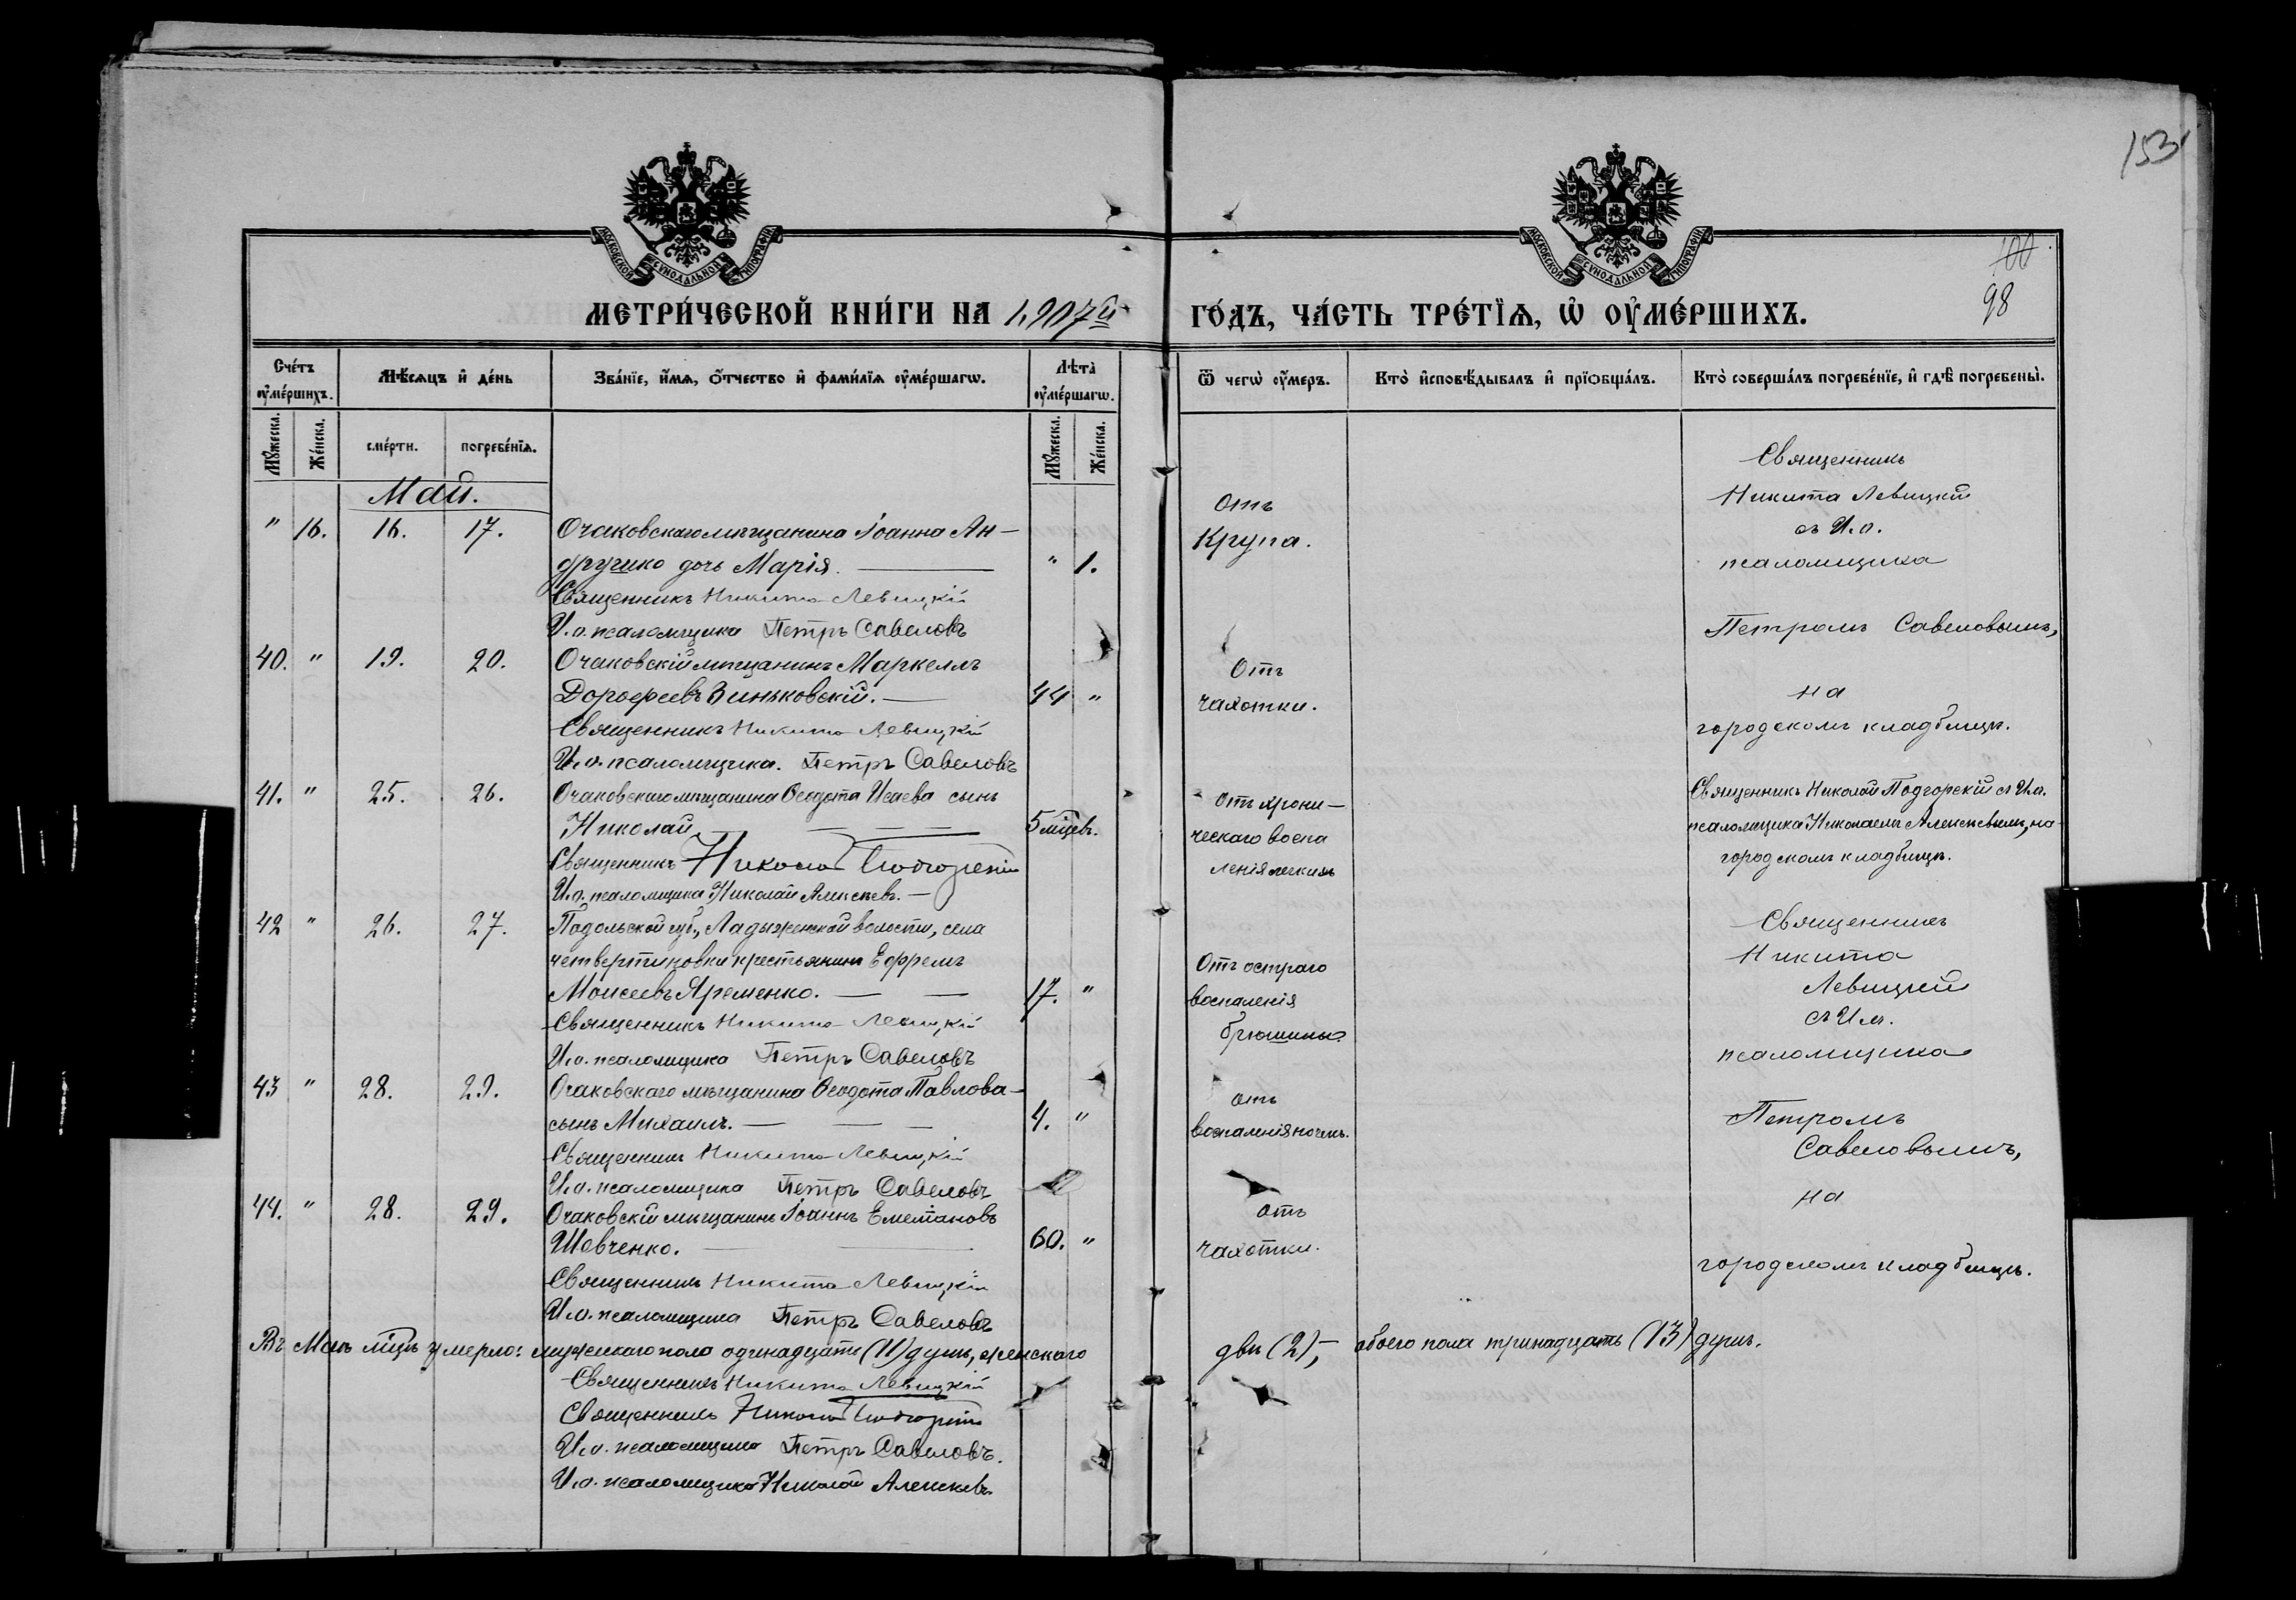 153
МОСКОВСКОЙ СѴНОДАЛЬНОЙ ТИПОГРАФІИ
МОСКОВСКОЙ СѴНОДАЛЬНОЙ ТИПОГРАФІИ
100
98
МЕТРИ́ЧЕСКОЙ КНИ́ГИ НА 1907й ГО́ДЪ, ЧА́СТЬ ТРЕ́ТЇѦ, Ѡ҆ ОУ҆МЕ́РШИХЪ.
Сче́тъ оу҆ме́ршихъ.
Мѣ́сѧцъ и҆ де́нь
Зва́нїе, и҆́мѧ, ѻ҆́тчество и҆ фами́лїѧ оу҆ме́ршагѡ.
Лѣта̀ оу҆ме́ршагѡ.
Ѿ чегѡ̀ оу҆́меръ.
Кто̀ и҆сповѣ́дывалъ и҆ прїѡбща́лъ.
Кто̀ соверша́лъ погребе́нїе, и҆ гдѣ̀ погребены̀.
Мꙋ́жеска.
Же́нска.
сме́рти.
погребе́нїѧ.
Мꙋ́жеска.
Же́нска.
Май.
" 16. 16. 17. Очаковскаго мѣщанина Іоанна Ан-
другико дочь Марія. " 1.
Священникъ Никита Левицкій
И.о. псаломщика Петръ Савеловъ
Отъ
Крупа.
Священникъ
Никита Левицкій
съ И.о.
псаломщика
Петромъ Савеловымъ,
на
городскомъ кладбищѣ.
40. " 19. 20. Очаковскій мѣщанинъ Маркеллъ
Дороѳеевъ Зиньковскій. 44 "
Священникъ Никита Левицкій
И.о. псаломщика. Петръ Савеловъ
Отъ
чахотки.
41. " 25. 26. Очаковскаго мѣщанина Ѳеодота Исаева сынъ
Николай 5 мѣцевъ.
Священникъ Николай Подгорскій
И.о. псаломщика Николай Алексѣевъ.
Отъ хрони-
ческаго воспа
ленія легкихъ
Священникъ Николай Подгорскій съ И.о.
псаломщика Николаемъ Алексѣевымъ, на
городскомъ кладбищѣ.
42 " 26. 27. Подольской губ., Ладыженской волости, села
Четвертиновки крестьянинъ Ефремъ
Моисеевъ Яременко. 17. "
Священникъ Никита Левицкій
И.о. псаломщика Петръ Савеловъ
Отъ остраго
воспаленія
брюшины
Священникъ
Никита
Левицкій
съ И.о.
псаломщика
Петромъ
Савеловымъ,
на
городскомъ кладбищѣ.
43 " 28. 29. Очаковскаго мѣщанина Ѳеодота Павлова
сынъ Михаилъ. 4. "
Священникъ Никита Левицкій
И.о. псаломщика Петръ Савеловъ
Отъ
воспаленія почекъ.
44. " 28. 29. Очаковскій мѣщанинъ Іоаннъ Емеліановъ
Шевченко. 60. "
Священникъ Никита Левицкій
И.о. псаломщика Петръ Савеловъ
Отъ
чахотки.
Въ Маѣ мѣцѣ умерло: мужескаго пола одинадцать (11) душъ, женскаго двѣ (2),- обоего пола тринадцать (13) душъ.
Священникъ Никита Левицкій
Священникъ Николай Подгорскій
И.о. псаломщика Петръ Савеловъ.
И.о. псаломщика Николай Алексѣевъ.